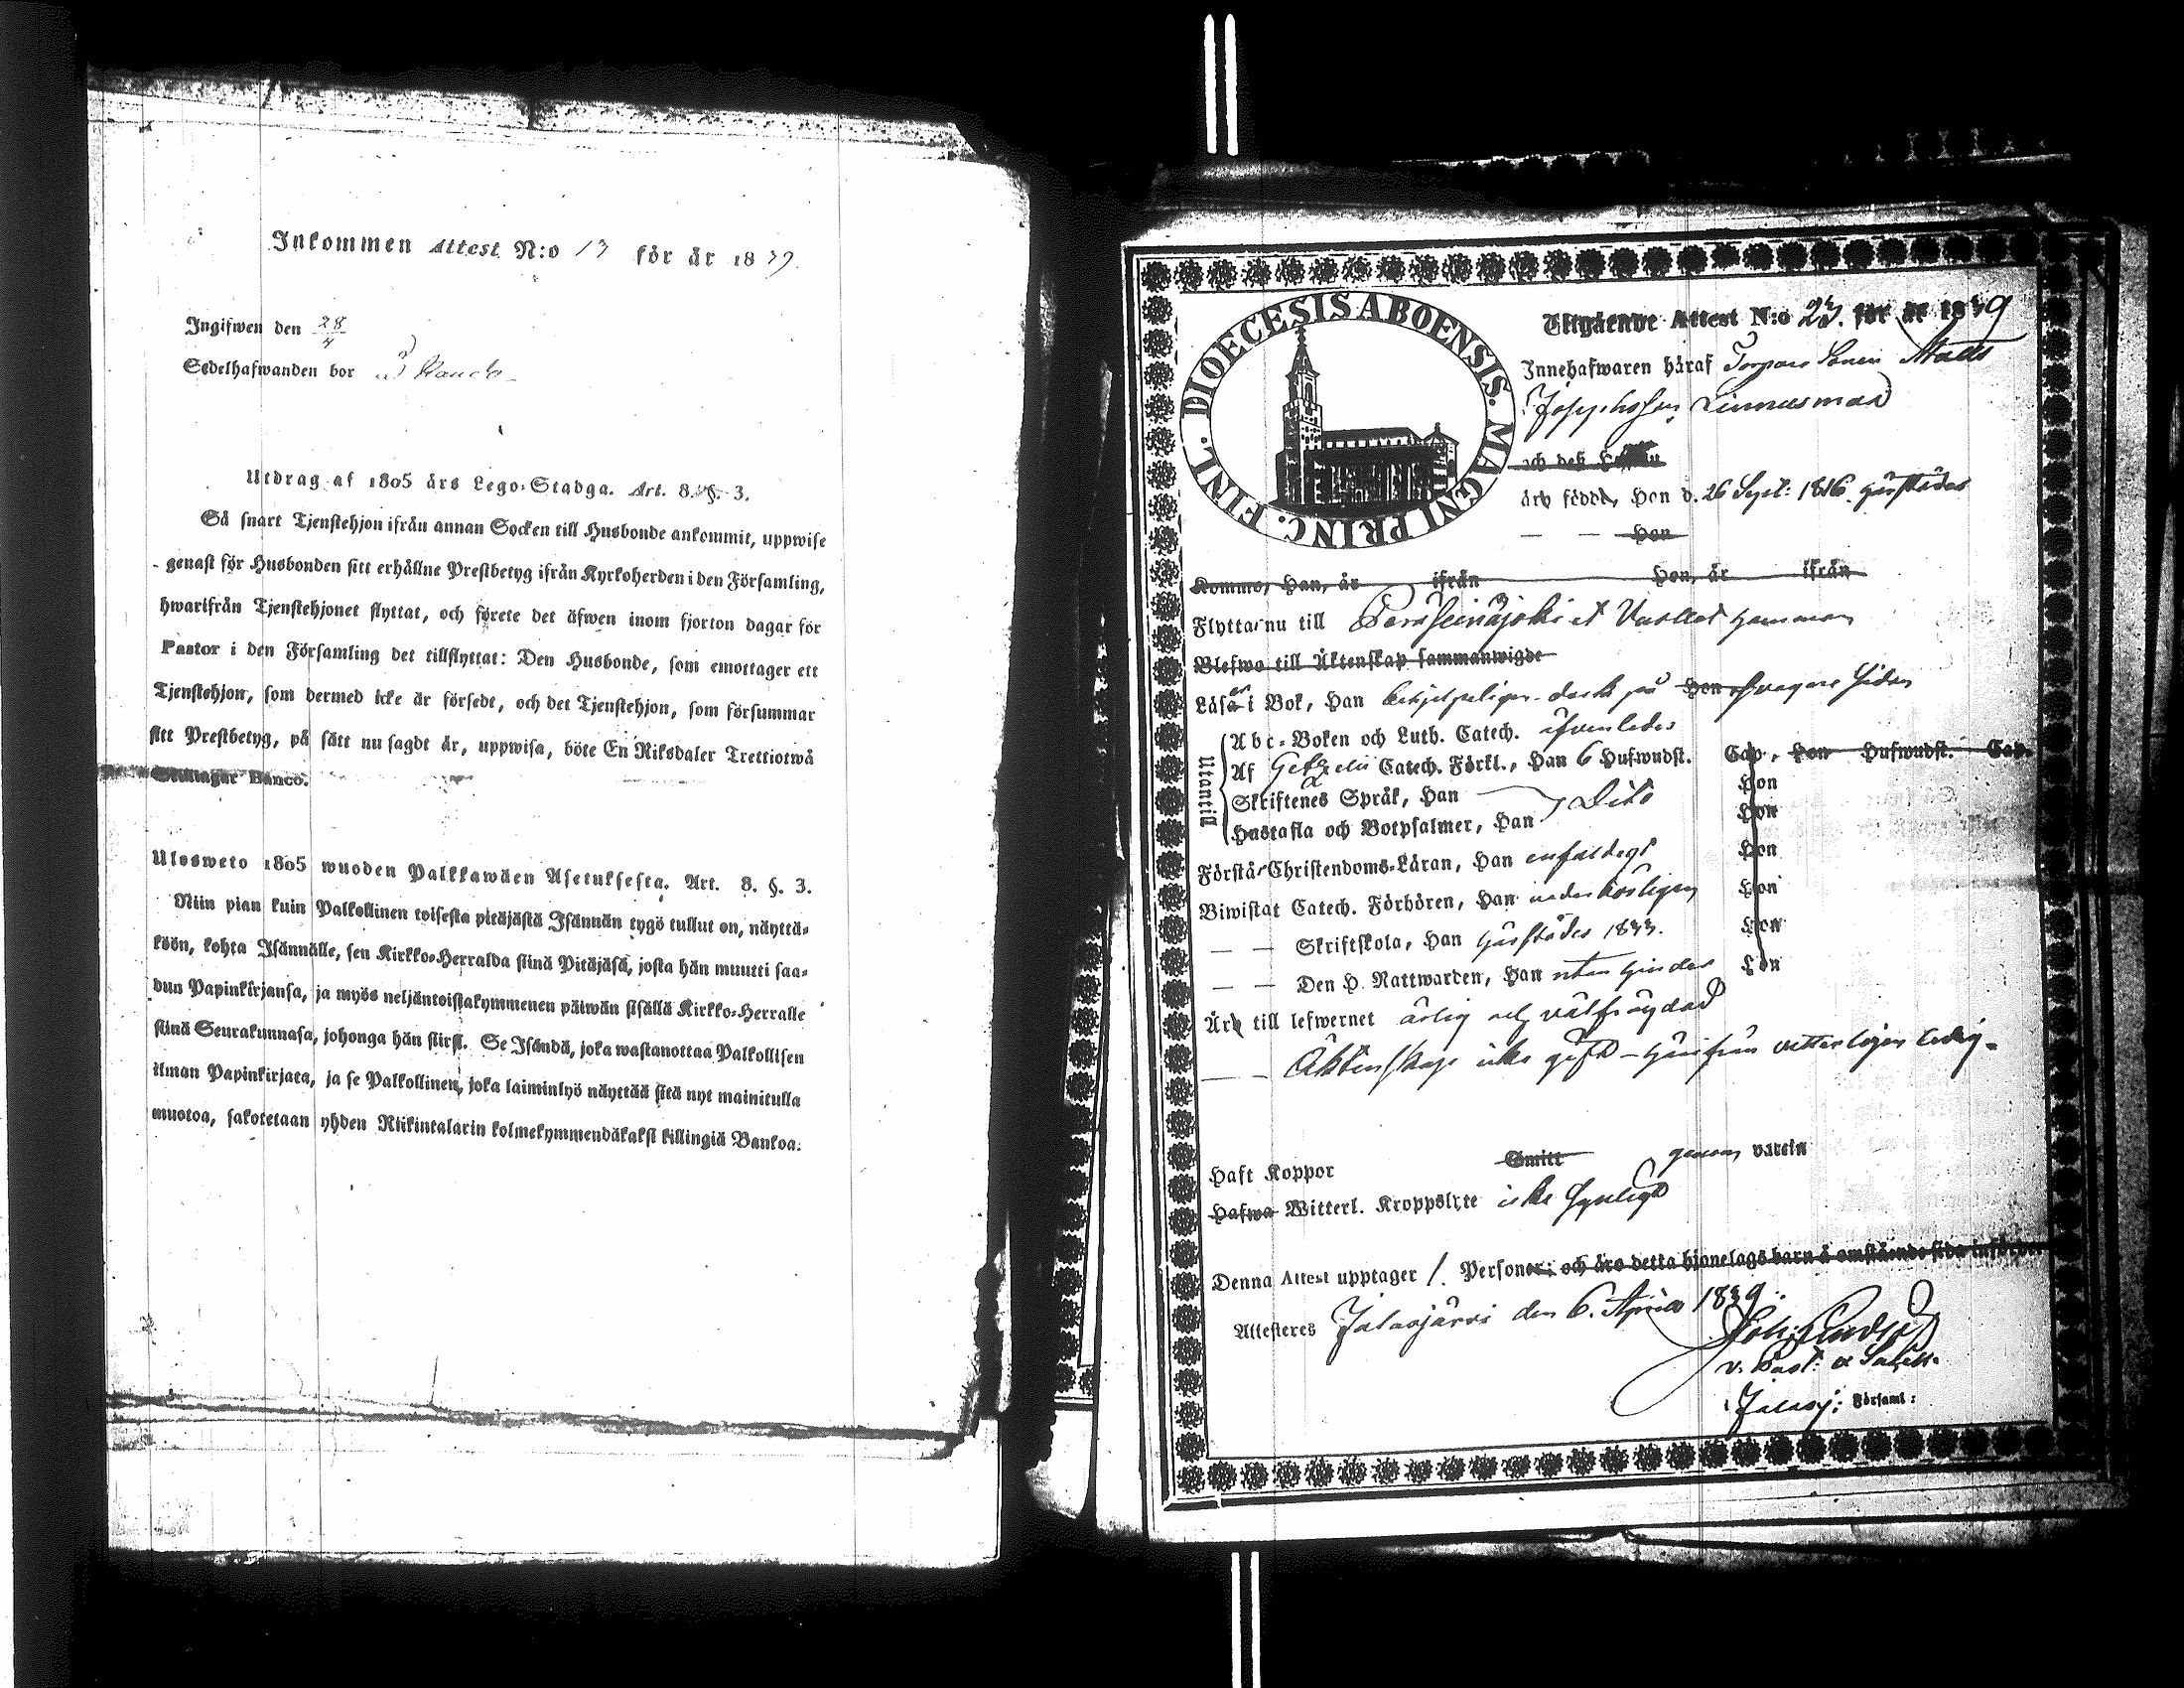 Inkommen Attest N:o 13 för år 1839.
Ingifwen den 28/4
Sedelhafwanden bor i
Utdrag af 1805 års Lego-Stadga. Art. 8. §. 3.
Så snart Tjenstehjon ifrån annan Socken till Husbonde ankommit, uppwise
genast för Husbonden sitt erhållne Prestbetyg ifrån Kyrkoherden i den Församling,
hwarifrån Tjenstehjonet flyttat, och förete det äfwen inom fjorton dagar för
Pastor i den Församling det tillflyttat: Den Husbonde, som emottager ett
Tjenstehjon, som dermed icke är försedt, och det Tjenstehjon, som försummar
sitt Prestbetyg, på sätt nu sagdt är, uppwisa, böte En Riksdaler Trettiotwå
Skillingar Banco.
Ulosweto 1805 wuoden Palkkawäen Asetuksesta. Art. 8. §. 3.
Niin pian kuin Palkollinen toisesta pitäjästä Isännän tygö tullut on, näyttä-
köön, kohta Isännälle, sen Kirkko-Herralda siinä Pitäjäsä, josta hän muutti saa-
dun Papinkirjansa, ja myös neljäntoistakymmenen päiwän sisällä Kirkko-Herralle
siinä Seurakunnasa, johonga hän siirsi. Se Isändä, joka wastanottaa Palkollisen
ilman Papinkirjata, ja se Palkollinen, joka laiminlyö näyttää sitä nyt mainitulla
muotoa, sakotetaan yhden Riikintalarin kolmekymmendäkaksi killingiä Bankoa.
DIOECESIS ABOENSIS. MAGNI PRINC. FINL.
Utgående Attest N:o 23. för år 1839
Innehafwaren häraf Torpare Sonen Matts
Josephsson Linnusmaa
och deß Hustru
äro födde, Hon d. 26 Sept: 1816. härstädes
— — Hon
Kommo, Han, år ifrån Hon, år ifrån
Flytta nu till Peräseinäjoki
Blefwo till Äktenskap sammanwigde
Läsa i Bok, Han behjelpeligen dock på Hon swagare sidan
Utantill
Abc-Boken och Luth. Catech. äfvenledes
Af Gezelii Catech. Förkl., Han 6 Hufwudst. Cap, Hon Hufwudst. Cap.
Skriftenes Språk, Han Dito Hon
Hustafla och Botpsalmer, Han Hon
Förstå Christendoms-Läran, Han enfaldigt Hon
Biwistat Catech. Förhören, Han wederbörligen Hon
— — Skriftskola, Han härstädes 1833. Hon
— — Den H. Nattwarden, Han utan hinder Hon
Äro till lefwernet ärlig och välfräjdad
— — Äktenskap icke gift – härifrån vetterligen ledig.
Haft Koppor Smitt genom vaccin
Hafwa Witterl. Kroppslyte icke synligt
Denna Attest upptager 1. Personer; och äro detta hjonelags barn å omstående sida införde.
Attesteres Jalasjärvi den 6. April 1839.
v. Past.
i Jalasj: Församl: